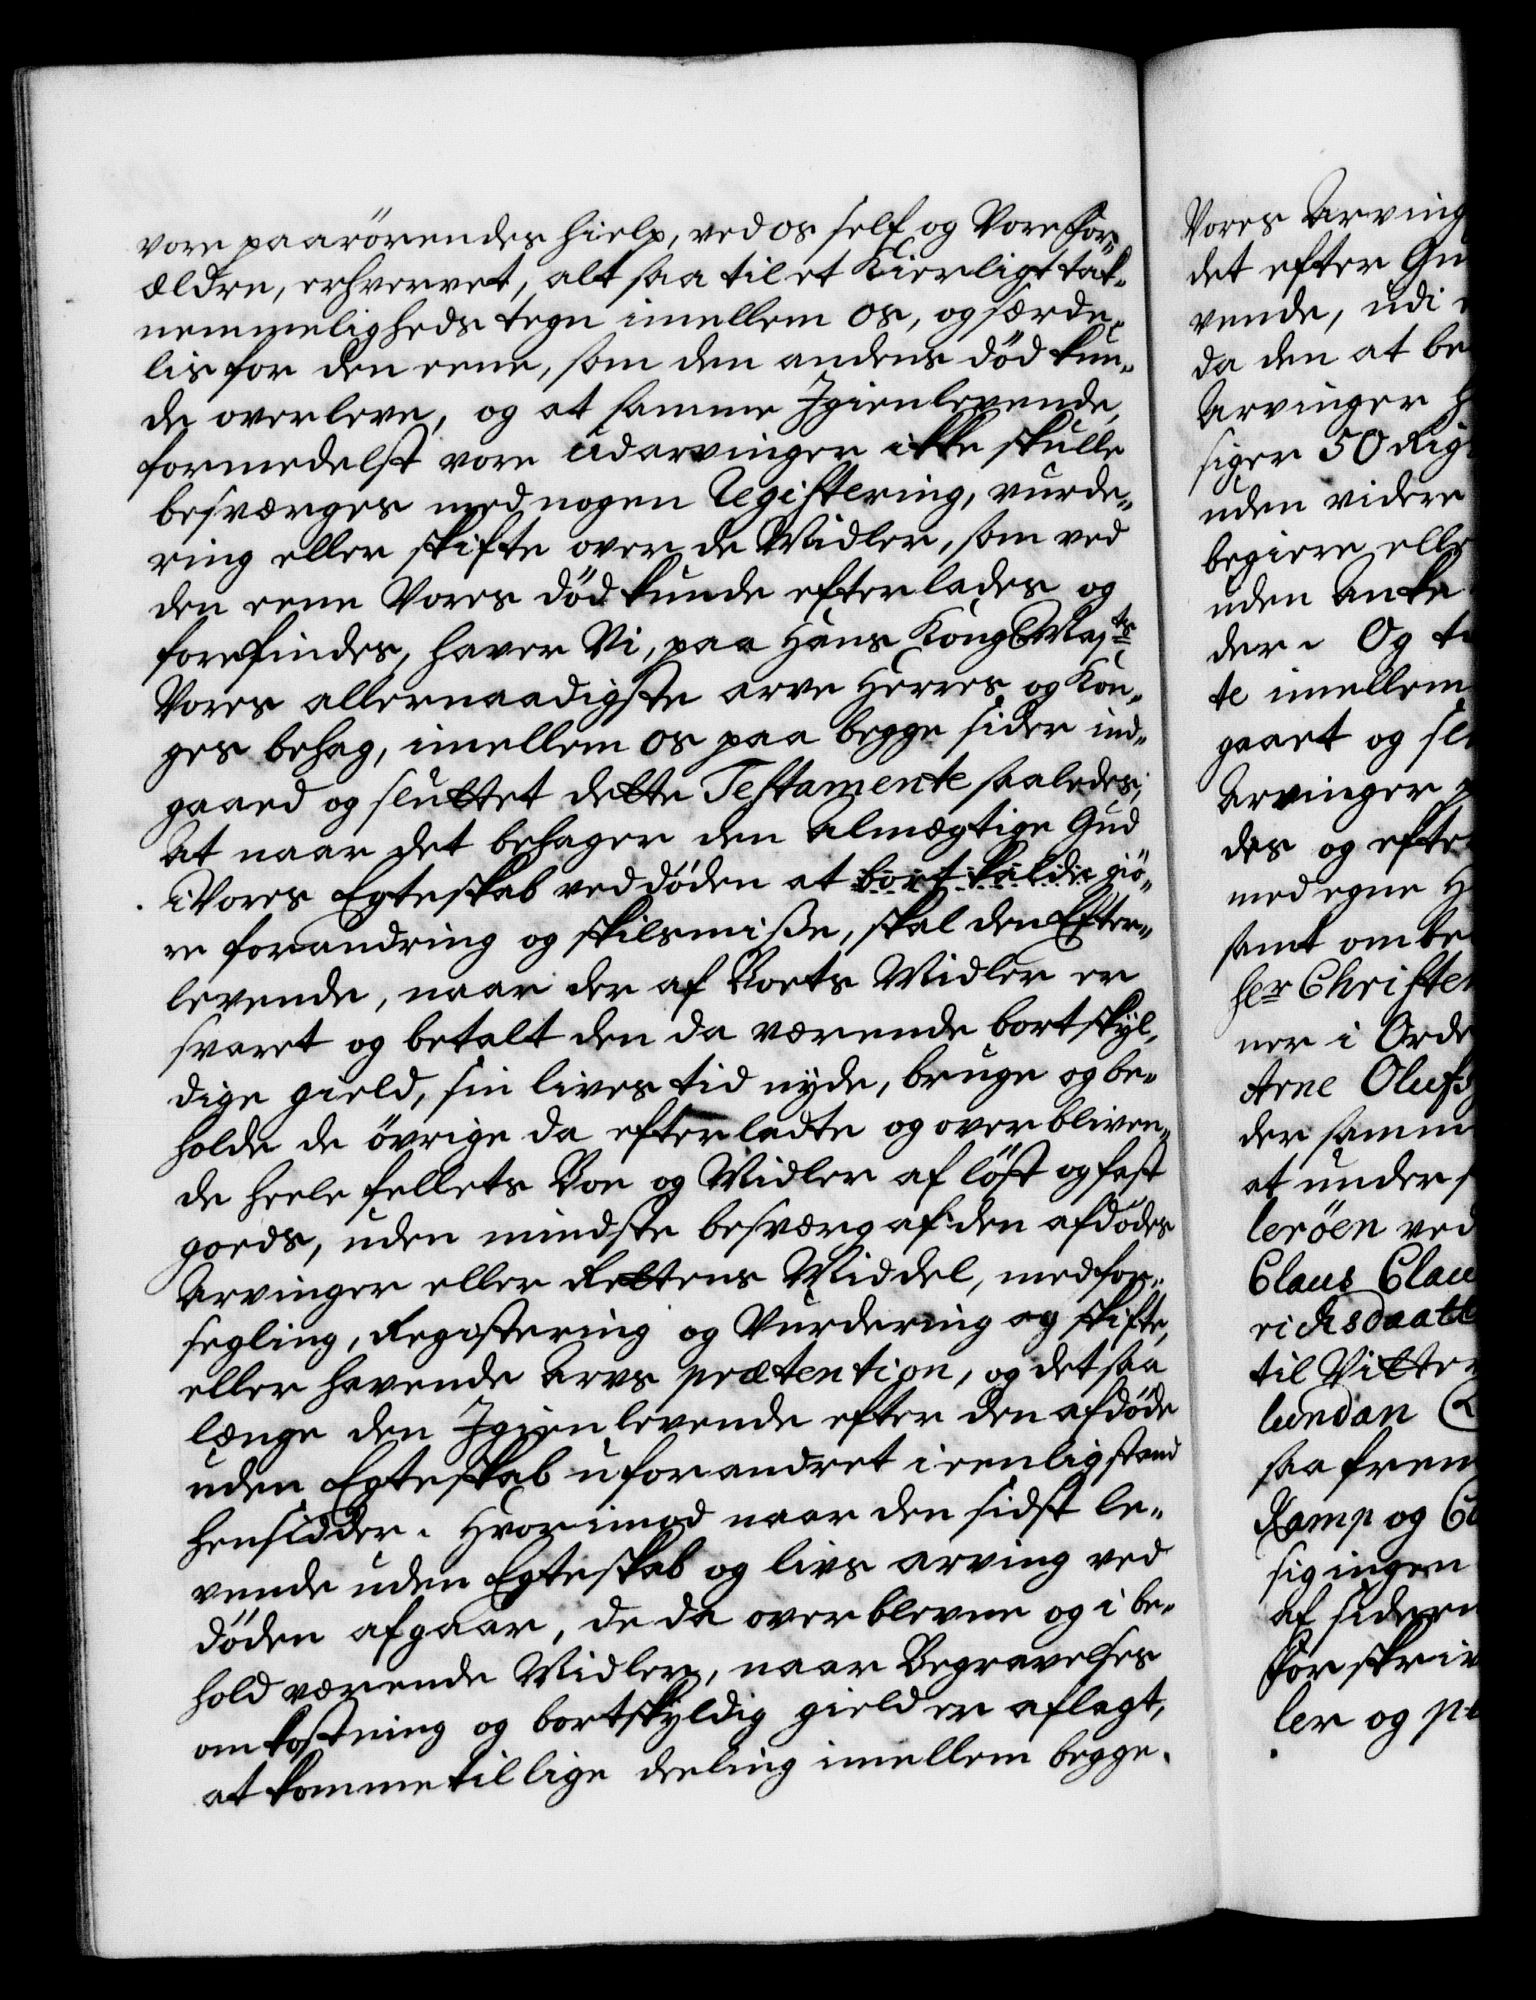 vore paarörendes hielp, ved os self og Vore For„
ældre, erhvervet, alt saa til et Kierligt tak„
nemmeligheds tegn imellem os, og særde„
lis for den eene, som den andens död kun„
de overleve, og at samme Igienlevende,
formedelst vore udarvinger ikke skulle
besværges med nogen Registering, vurde„
ring eller skifte over de Midler, som ved
den eene Vores död kunde efterlades og
forefindes, haver Vi, paa Hans Kongl Mayts
Vores allernaadigste arve Herres og Kon„
ges behag, imellem os paa begge sider ind„
gaaed og sluttet dette Testamente saaledes,
At naar det behager den Almægtige Gud
i Vores Egteskab ved döden at bortkalde giö„
re forandring og skilsmisse, skal den Efter„
levende, naar der af Boets Midler er
svaret og betalt den da værende bortskyl„
dige gield, sin lives tid nyde, bruge og be„
holde de övrige da efterladte og overbliven„
de heele fellets Boe og Midler af löst og fast
goeds, uden mindste besværg af den afdödes
Arvinger eller Rettens Middel, med for„
segling, Registering og Vurdering og skifte,
eller havende Arvs prætention, og det saa
længe den Igienlevende efter den afdöde
uden Egteskab uforandret i eenlig stand
hensidder. Hvorimod naar den sidst le„
vende uden Egteskab og livs arving ved
döden afgaar, de da overblevne og i be„
hold værende Midler, naar Begravelses
omkostning og bortskyldig gield er aflagt,
at komme til lige deeling imellem begge.
Vores Arving
det efter Gu
vende, udi
da den at be
Arvinger
siger 50 Rig
uden videre
begiere elle
uden Anke
der. Og
te imellem
gaaet og sl
Arvinger
des og efte
med egne H
samt ombe
her Christen
ner i Orde
Arne Olufs
der samm
at unders
leröen ved
Claus Clau
richsdaatt
til Vitter
lundan
saa frem
Kamp og
sig ingen
af siderne
Forskriv
ler og